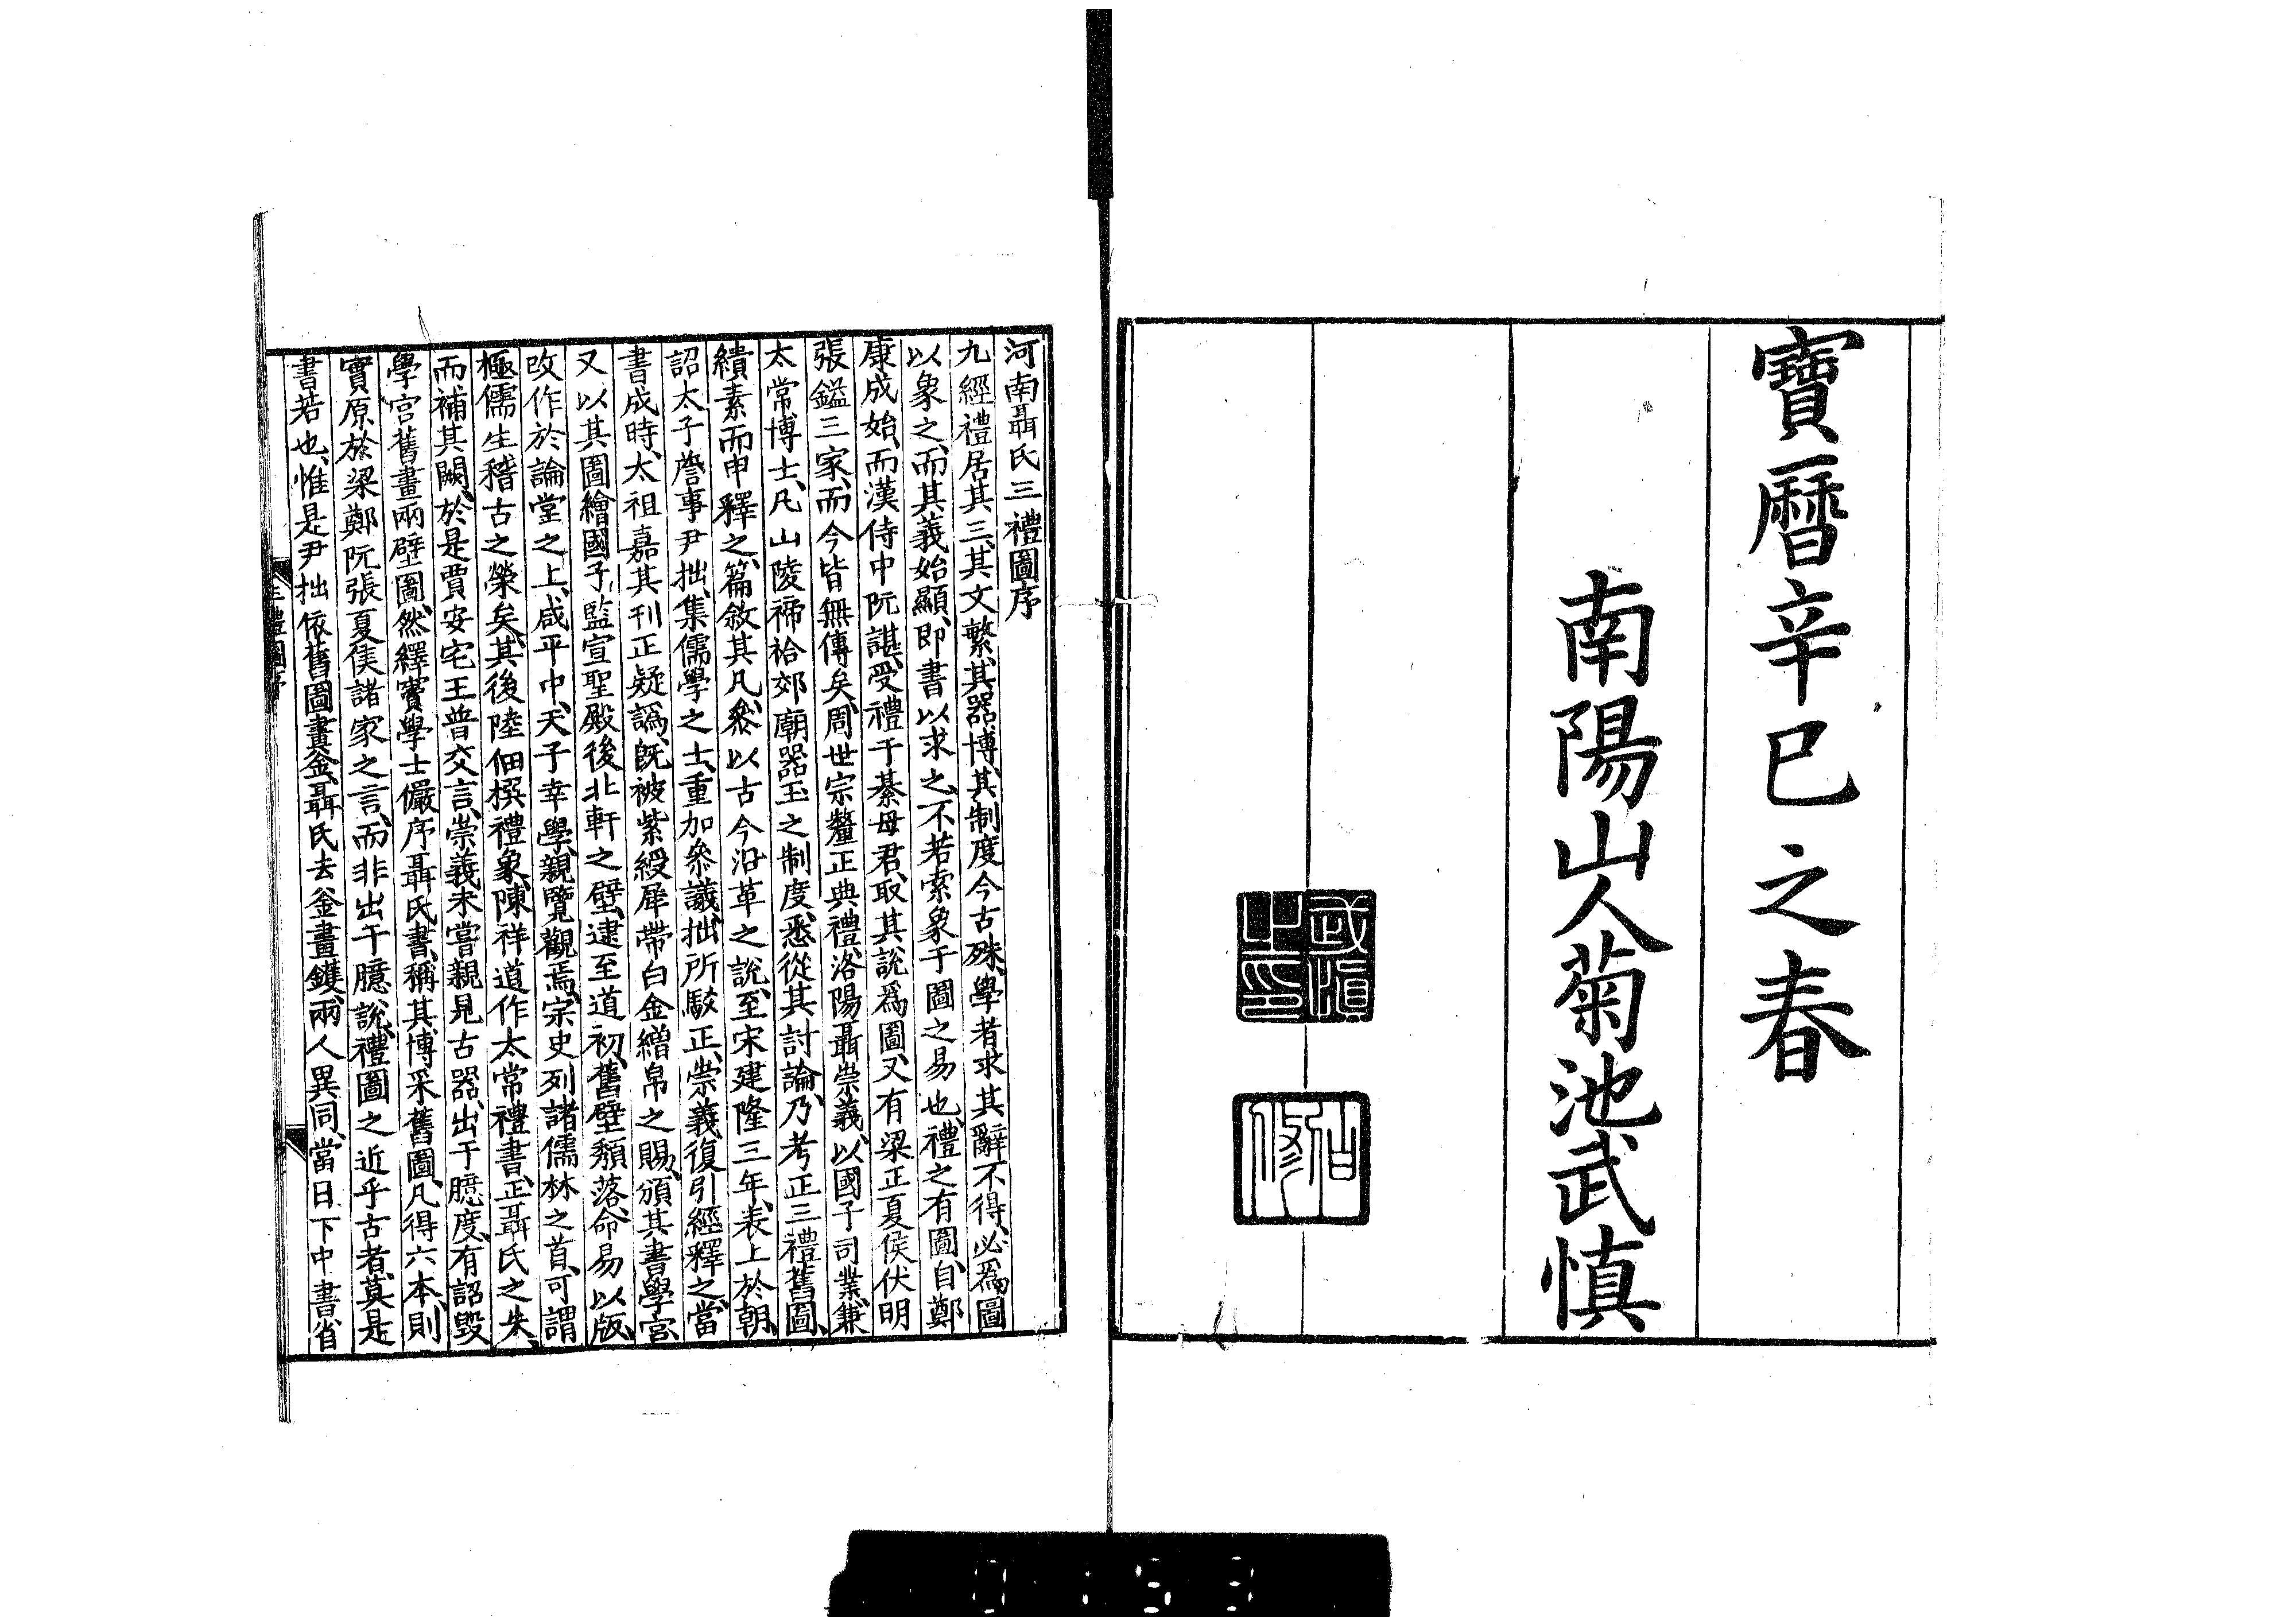 寶曆辛巳之春
南陽山人菊池武慎
武慎之印
河南聶氏三禮圖序
九經禮居其三、其文繁、其器博、其制度今古殊、學者求其辭不得、必爲圖
以象之、而其義始顯、即書以求之、不若索象于圖之易也、禮之有圖、自鄭
康成始、而漢侍中阮諶、受禮于綦母君、取其說爲圖、又有梁正夏侯伏明
張鎰三家、而今皆無傳矣、周世宗釐正典禮、洛陽聶崇義、以國子司業、兼
太常博士、凡山陵禘祫郊廟器玉之制度、悉從其討論、乃考正三禮舊圖、
繢素而申釋之、篇敘其凡、叅以古今沿革之說、至宋建隆三年、表上於朝、
詔太子詹事尹拙、集儒學之士、重加叅議、拙所駁正、崇義復引經釋之、當
書成時、太祖嘉其刊正疑譌、旣被紫綬犀帶白金繒帛之賜、頒其書學宮、
又以其圖繪國子監宣聖殿後北軒之壁、逮至道初、舊壁頹落、命易以版、
改作於論堂之上、咸平中、天子幸學、親覽觀焉、宗史列諸儒林之首、可謂
極儒生稽古之榮矣、其後陸佃撰禮象、陳祥道作太常禮書、正聶氏之失、
而補其闕、於是賈安宅王普交言、崇義未嘗親見古器、出于臆度、有詔毀
學宮舊畫兩壁圖、然繹竇學士儼序聶氏書、稱其博采舊圖、凡得六本、則
實原於梁鄭阮張夏侯諸家之言、而非出于臆說、禮圖之近乎古者、莫是
書若也、惟是尹拙依舊圖畫釜、聶氏去釜畫鑊、兩人異同、當日下中書省
三禮圖序
0153